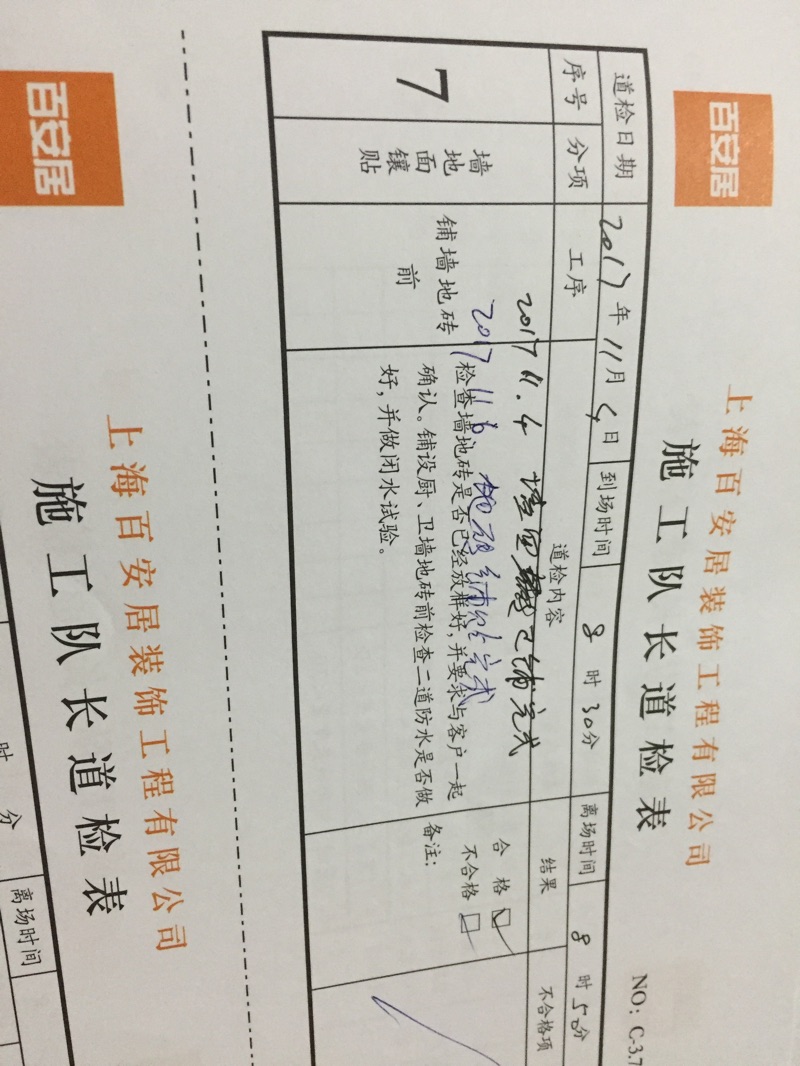 百安居
上海百安居装饰工程有限公司
施工队长道检表
NO：C-3.7
道检日期 2017年11月4日 到场时间 8时30分 离场时间 8时50分
序号 分项 工序 道检内容 结果 不合格项
2017.11.4 墙面 已铺完成
2017.11.6 地砖铺贴完成
7
墙地面镶贴
铺墙地砖前
检查墙地砖是否已经放样好，并要求与客户一起
确认。铺设厨、卫墙地砖前检查二道防水是否做
好，并做闭水试验。
合格
不合格
备注：
百安居
上海百安居装饰工程有限公司
施工队长道检表
时 分 离场时间